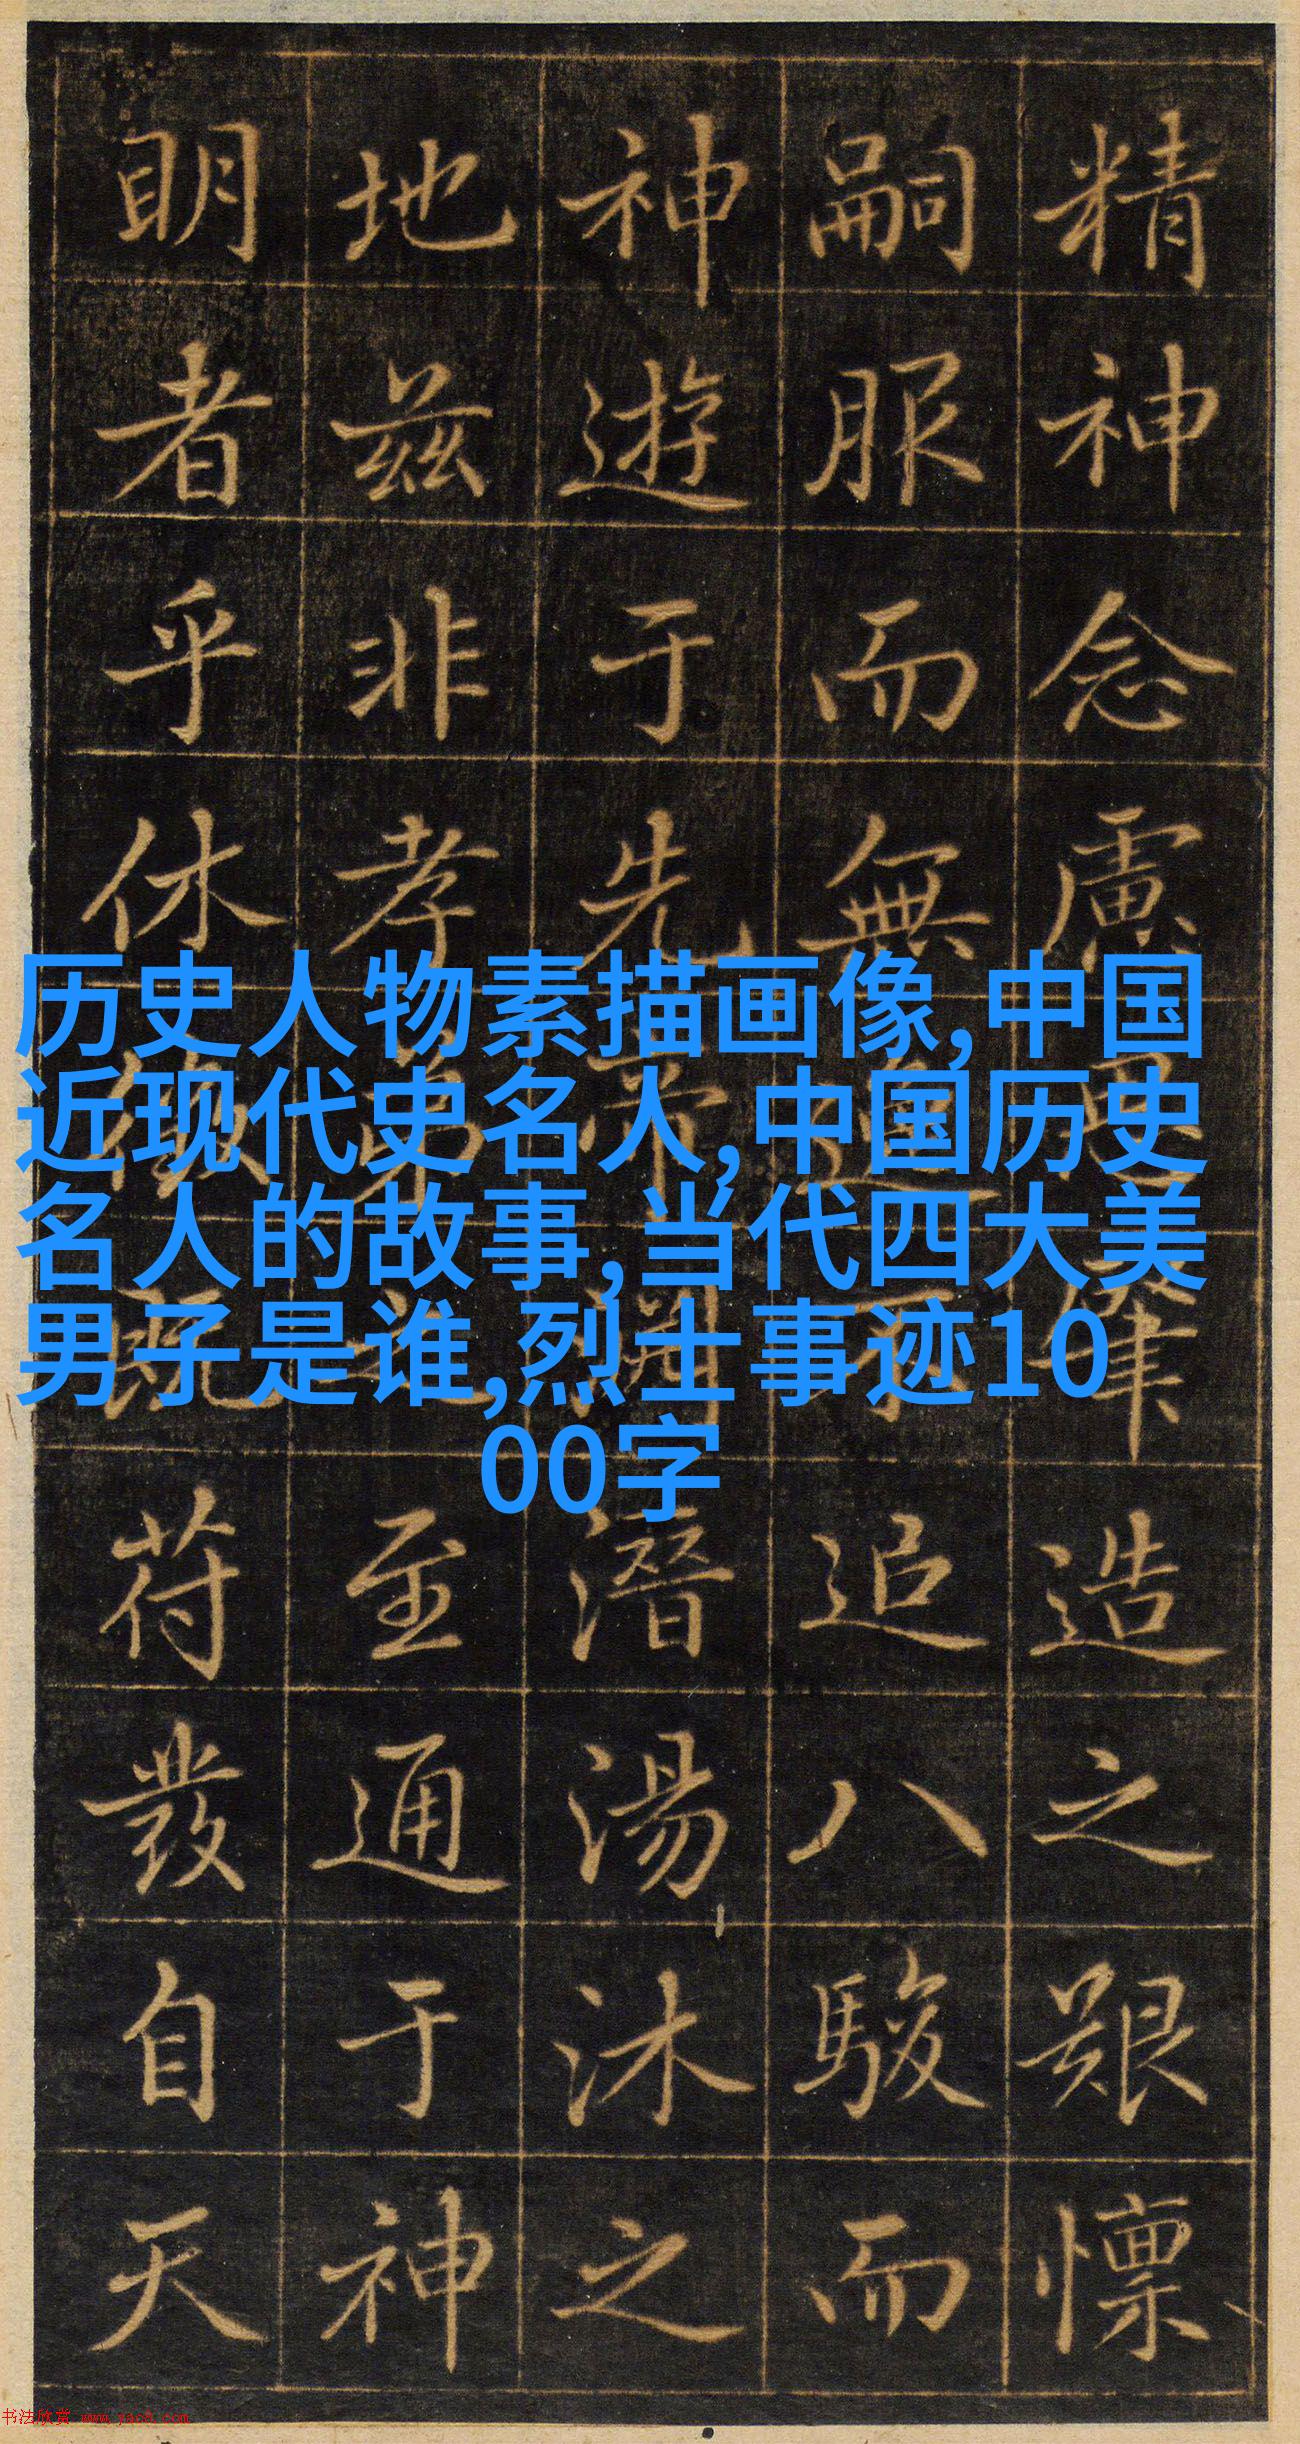 精神念慮肇造之艱懍
嗣服而無逸追八駿而
神遊于先帝潛湯沐之
地茲非孝弟之至通于神
明者乎休徵既符發自天
历史人物素描画像,中国
近现代史名人,中国历史
名人的故事,当代四大美
男子是谁,烈士事迹10
00字
书法欣赏 www.yac8.com